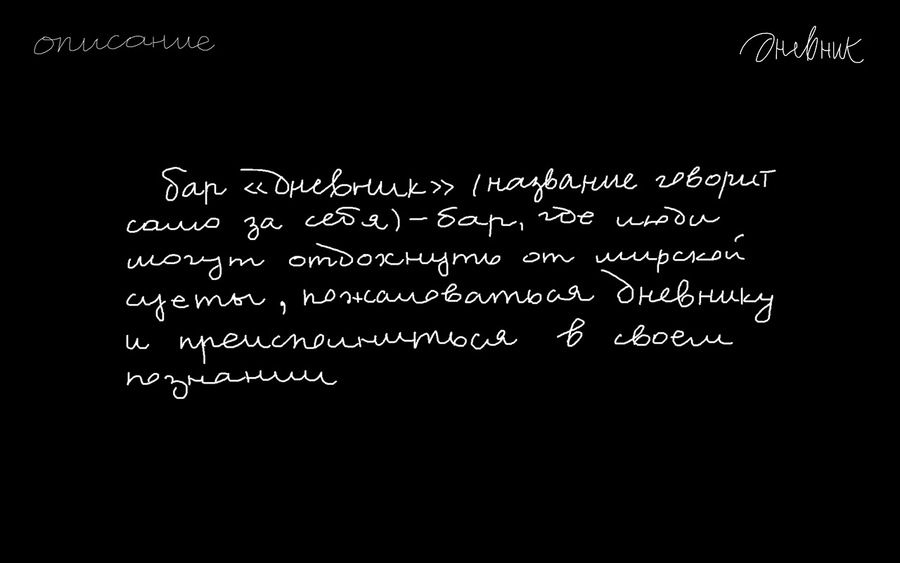 описание
дневник
бар «дневник» (название говорит
само за себя) – бар, где люди
могут отдохнуть от мирской
суеты, пожаловаться дневнику
и преисполниться в своем
познании